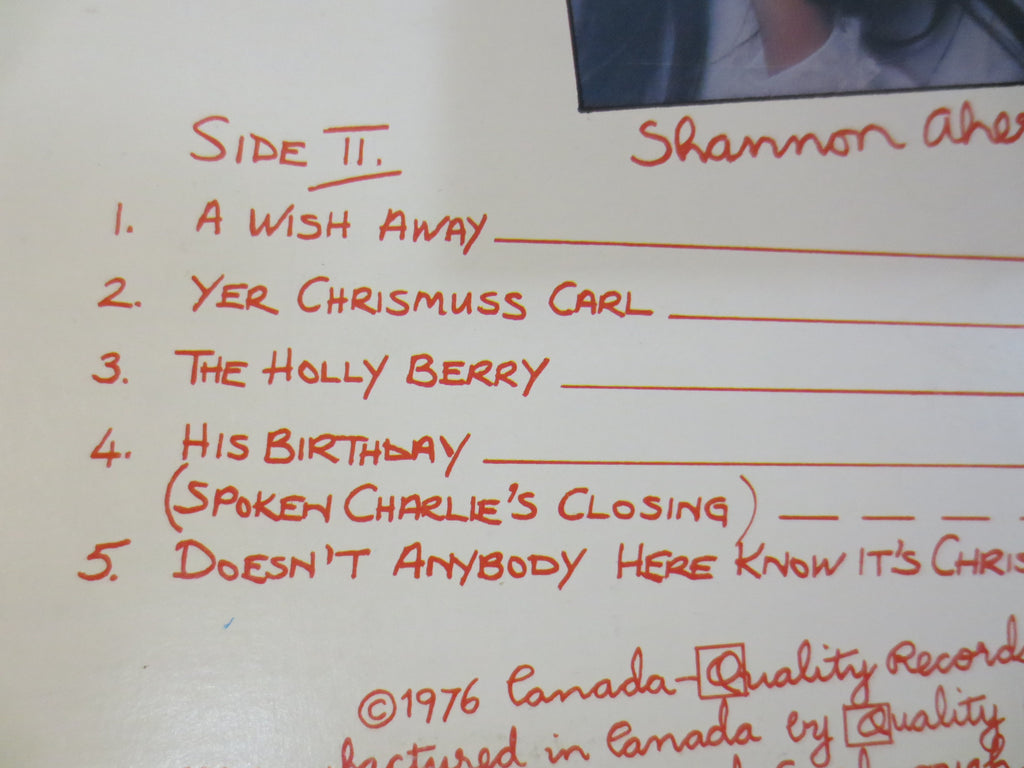 SIDE II.
Shannon
1. A WISH AWAY
2. YER CHRISMUSS CARL
3. THE HOLLY BERRY
4. HIS BIRTHDAY
(SPOKEN CHARLIE'S CLOSING)
5. DOESN'T ANYBODY HERE KNOW IT'S CHRIS
©1976 Canada-Quality Records
factured in Canada by Quality